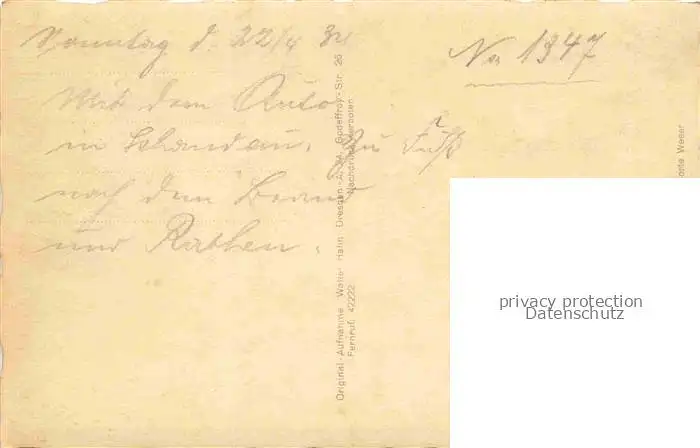 Sonntag d. 22/4 34
No 1947
Mit dem Auto
in Schandau. Zu Fuß
nach dem Brand
und Rathen.
Original-Aufnahme Walter Hahn Dresden-A. 24, Godeffroy-Str. 26
Fernruf: 42222 Nachdruck verboten
Weser
privacy protection
Datenschutz